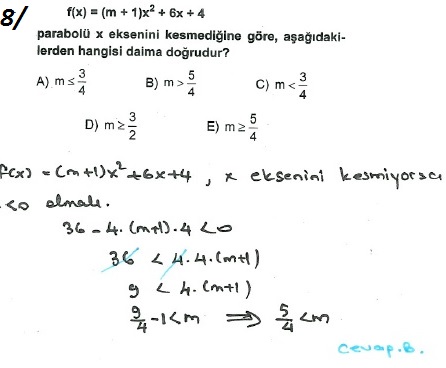 8/ f(x) = (m + 1)x² + 6x + 4
parabolü x eksenini kesmediğine göre, aşağıdaki-
lerden hangisi daima doğrudur?
A) m ≤ 3/4 B) m > 5/4 C) m < 3/4
D) m ≥ 3/2 E) m ≥ 5/4
f(x) = (m+1)x² + 6x + 4 , x eksenini kesmiyorsa
<0 olmalı.
36 - 4.(m+1).4 < 0
36 < 4.4.(m+1)
9 < 4.(m+1)
9/4 - 1 < m ⇒ 5/4 < m
Cevap.B.